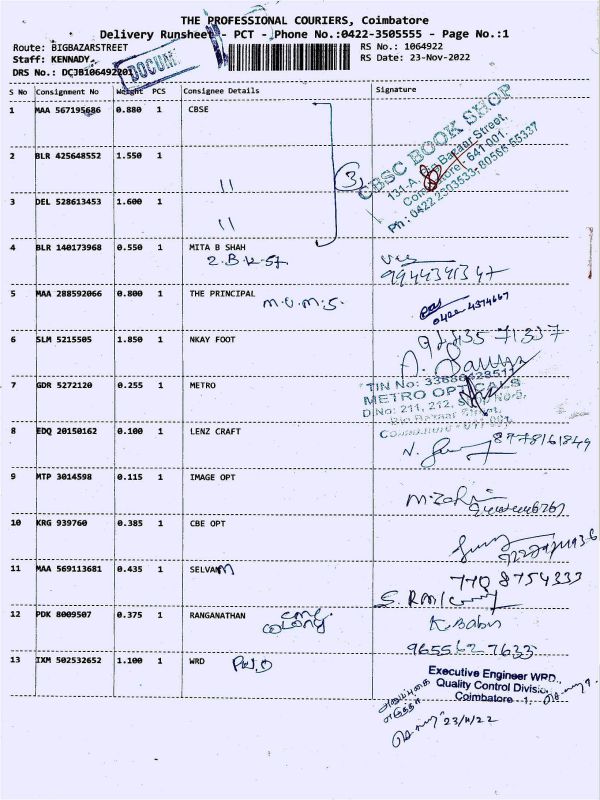 THE PROFESSIONAL COURIERS, Coimbatore
Delivery Runsheet - PCT - Phone No.:0422-3505555 - Page No.:1
Route: BIGBAZARSTREET
RS No.: 1064922
Staff: KENNADY
RS Date: 23-Nov-2022
DRS No.: DCJB106492201
DOCUM
S No Consignment No Weight PCS Consignee Details Signature
1 MAA 567195686 0.880 1 CBSE
CBSC BOOK SHOP
131-A, Big Bazaar Street,
Coimbatore - 641 001.
Ph : 0422 2303533, 80566 65337
3
2 BLR 425648552 1.550 1 "
3 DEL 528613453 1.600 1 "
4 BLR 140173968 0.550 1 MITA B SHAH
2.B.K-57
9944391347
5 MAA 288592066 0.800 1 THE PRINCIPAL
M.U.M.S.
0422 4374667
6 SLM 5215505 1.850 1 NKAY FOOT
7 GDR 5272120 0.255 1 METRO
METRO OPTICALS
D.No: 211, 212,
Big Bazaar Street,
8 EDQ 20150162 0.100 1 LENZ CRAFT
8778161849
9 MTP 3014598 0.115 1 IMAGE OPT
10 KRG 939760 0.385 1 CBE OPT
11 MAA 569113681 0.435 1 SELVAM
8754333
12 PDK 8009507 0.375 1 RANGANATHAN
colony
K. Babu
9655627633
13 IXM 502532652 1.100 1 WRD PWD
Executive Engineer WRD.,
Quality Control Division,
Coimbatore - 1.
23/11/22